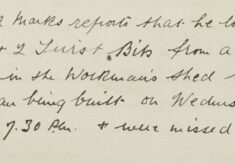 2 Marks reports that he lo
& 2 Twist Bits from a
in the Workman's Shed
an being built on Wednes
7.30 Pm. & were missed